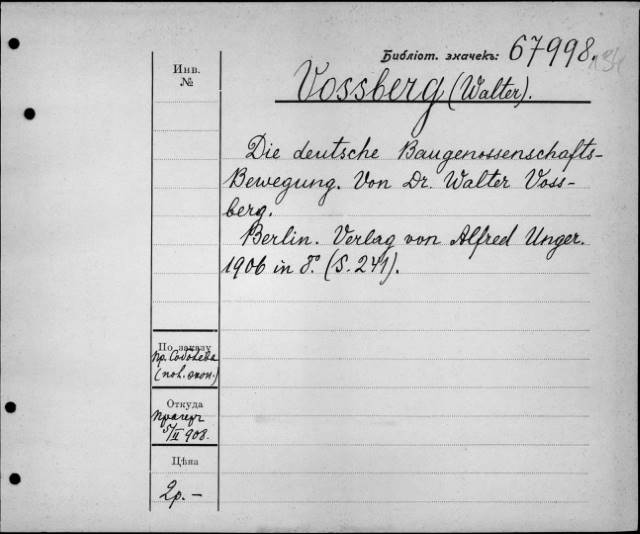 Библіот. значекъ: 67998.
Инв.
№
Vossberg (Walter).
Die deutsche Baugenossenschafts-
Bewegung. Von Dr. Walter Voss-
berg.
Berlin. Verlag von Alfred Unger.
1906 in 8°. (S. 241).
По заказу
пр. Соболева
(пол. экон.)
Откуда
5/II 908.
Цѣна
2р.–